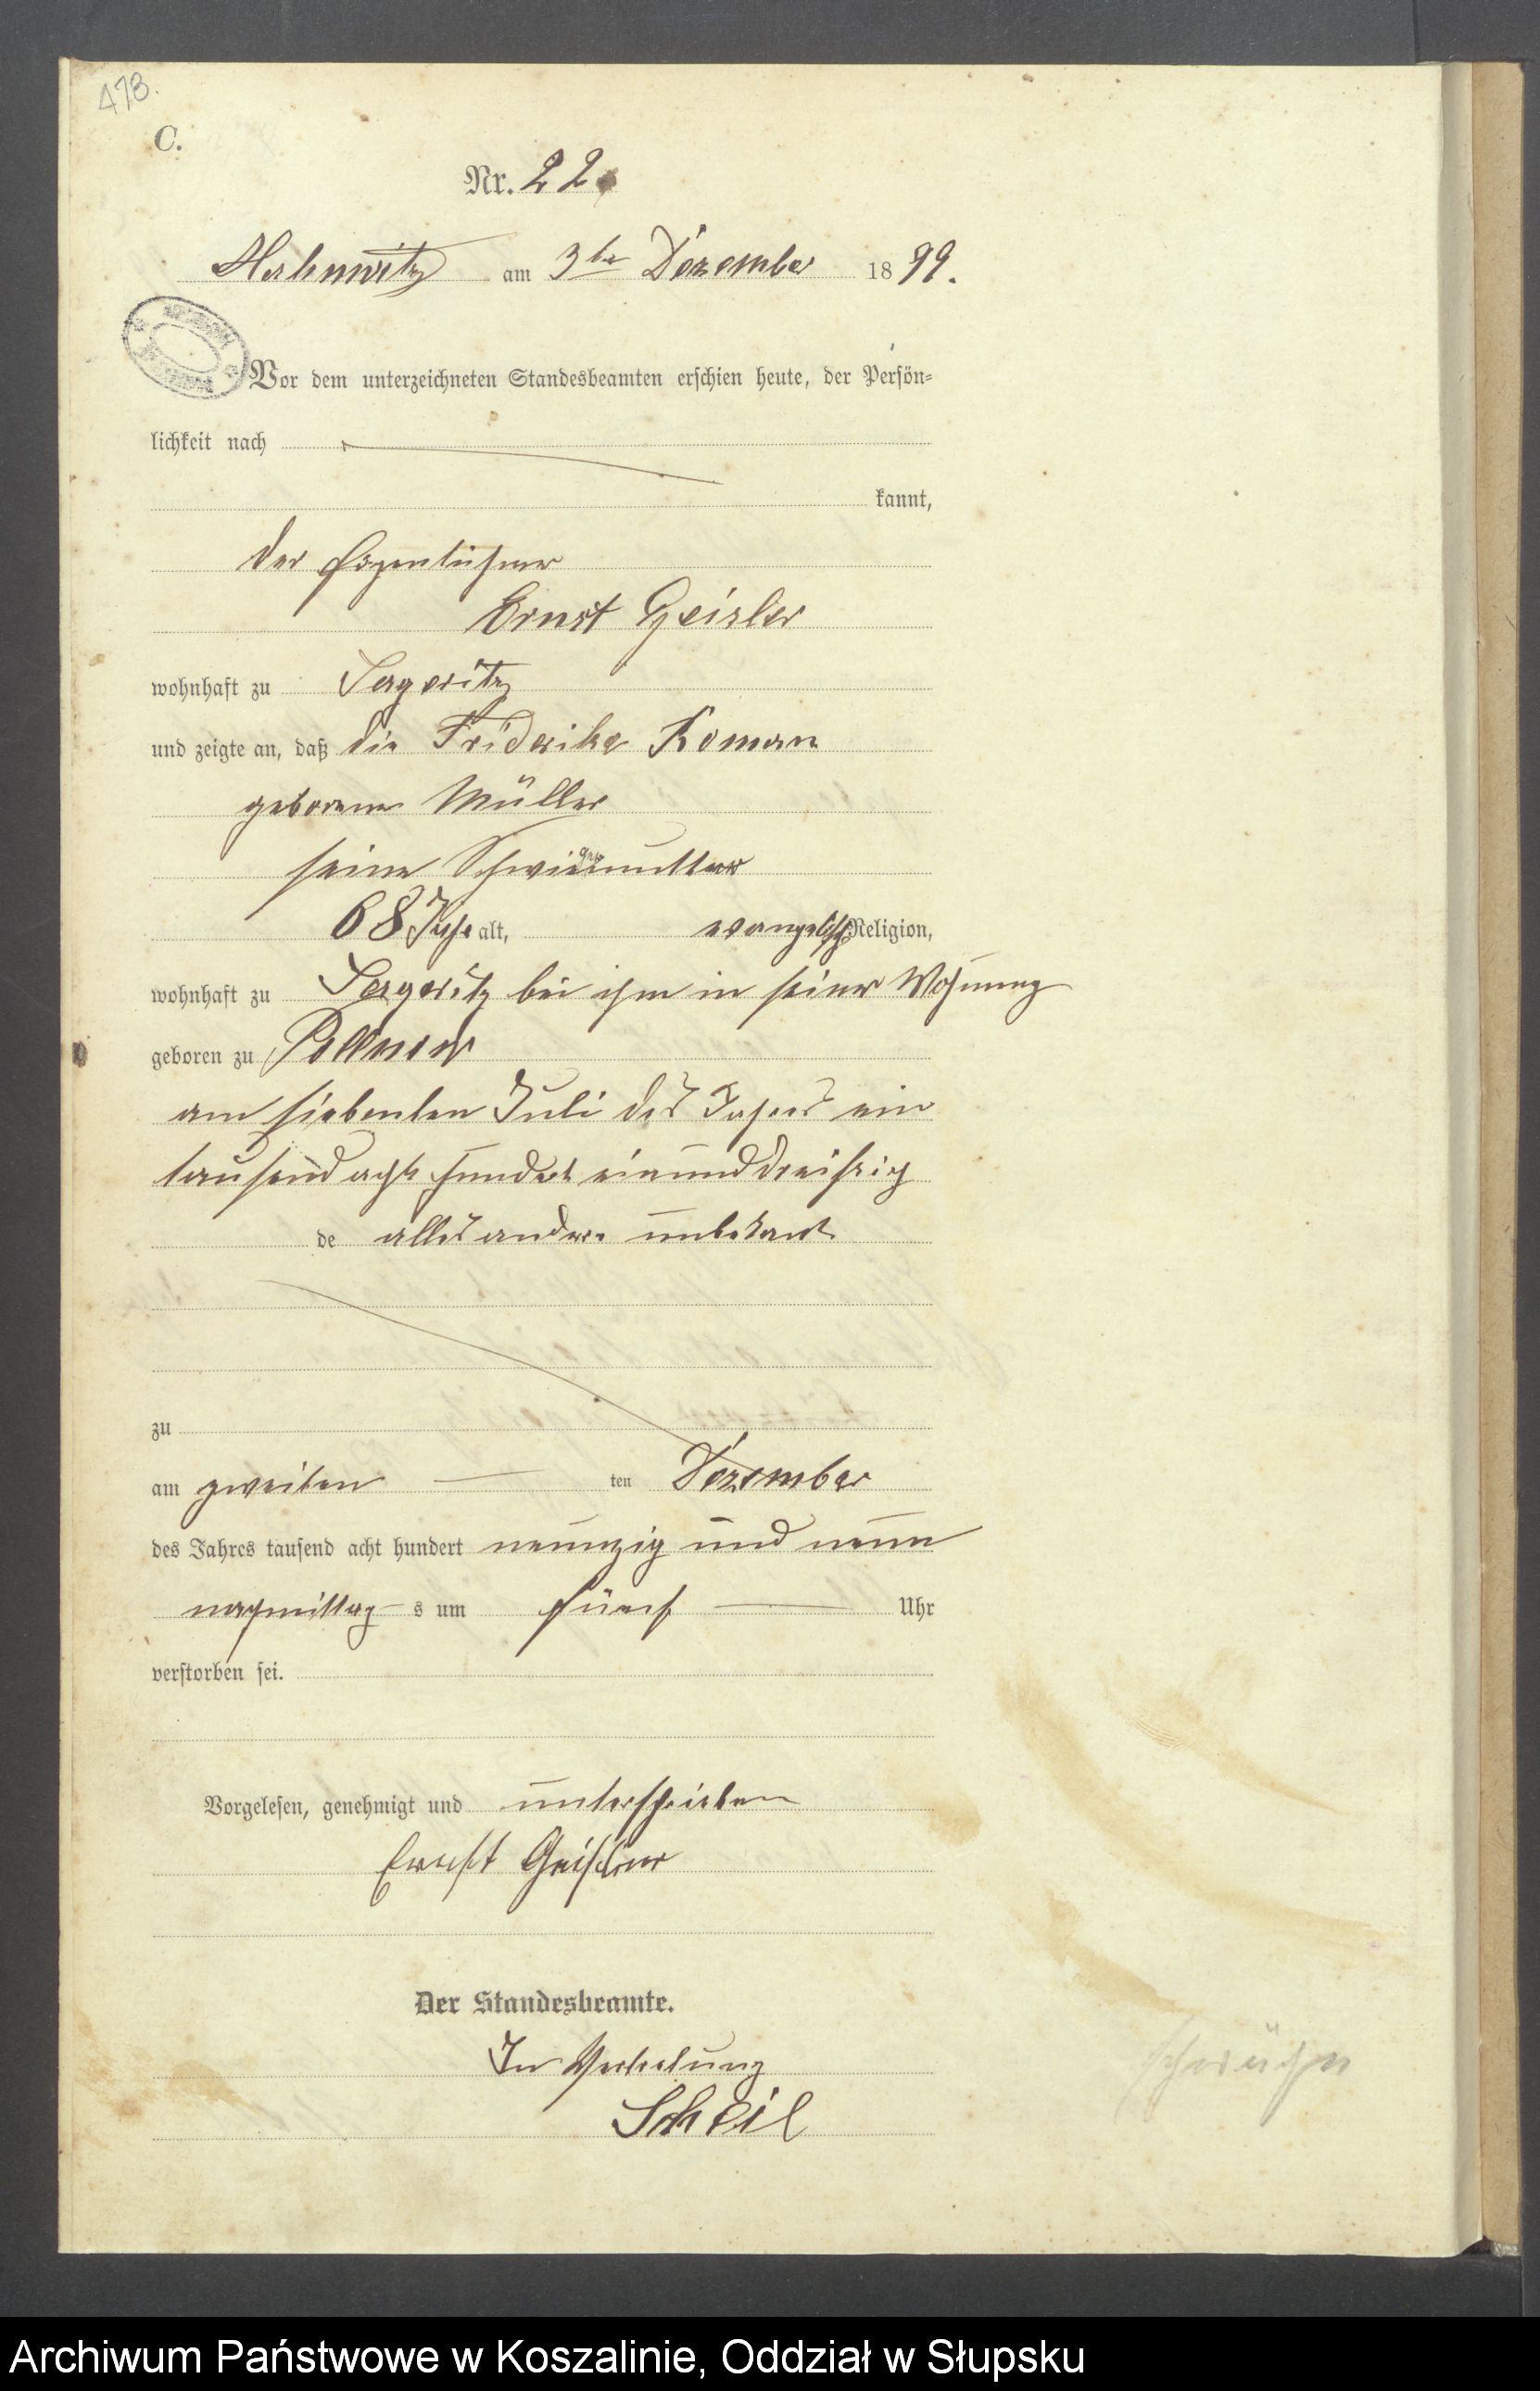 478.
C.
Nr. 22.
am 3ten Dezember 1899.
Vor dem unterzeichneten Standesbeamten erschien heute, der Persön=
lichkeit nach
kannt,
der Eigentühmer
Ernst Geisler
wohnhaft zu Sageritz
und zeigte an, daß die Friderike Roman
geborene Müller
seine Schwiegermutter
68 Jahr alt, evangelisch Religion,
wohnhaft zu Sageritz bei ihm in seiner Wohnung
geboren zu
am siebenten Juli des Jahres ein
tausend acht hundert einunddreißig
de alles andere unbekant
zu
am zweiten ten Dezember
des Jahres tausend acht hundert neunzig und neun
nachmittag s um fünf Uhr
verstorben sei.
Vorgelesen, genehmigt und unterschrieben
Ernst Geisler
Der Standesbeamte.
In Vertretung
Scheil
Archiwum Państwowe w Koszalinie, Oddział w Słupsku